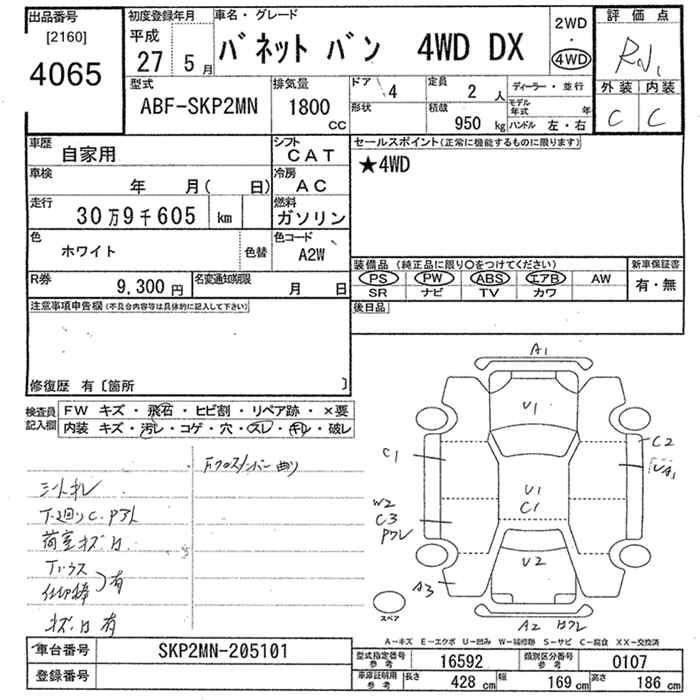 出品番号
[2160]
4065
初度登録年月
平成
27年 5月
車名・グレード
バネット バン 4WD DX
2WD
・
4WD
評価点
RA1
外装 内装
C C
型式
ABF-SKP2MN
排気量
1800 CC
ドア 4
形状
定員 2 人
積載 950 kg
ディーラー・並行
モデル年式 年
ハンドル 左・右
車歴 自家用
シフト CAT
車検 年 月( 日)
冷房 AC
走行 30万9千605 km
燃料 ガソリン
色 ホワイト 色替
色コード A2W
R券 9,300円
名変通知期限 月 日
セールスポイント(正常に機能するものに限ります)
★4WD
装備品 (純正品に限り○をつけてください)
PS PW ABS エアB AW
SR ナビ TV カワ
新車保証書
有・無
後日品
注意事項申告欄(不具合内容等は具体的に記入して下さい)
修復歴 有〔箇所 〕
検査員記入欄
FW キズ・飛石・ヒビ割・リペア跡・×要
内装 キズ・汚レ・コゲ・穴・スレ・キレ・破レ
Fクロスメンバー曲り
シートキレ
下廻りC.
荷室キズ凹
有
キズ凹有
A1
U1
C1
C2
UA1
U1
C1
W2
C3
ワレ
U2
A3
A2 ワレ
スペア
A-キズ E-エクボ U-凹み W-補修跡 S-サビ C-腐食 XX-交換済
車台番号 SKP2MN-205101
登録番号
型式指定番号参考 16592
類別区分番号参考 0107
車庫証明用参考 長さ 428 cm 幅 169 cm 高さ 186 cm